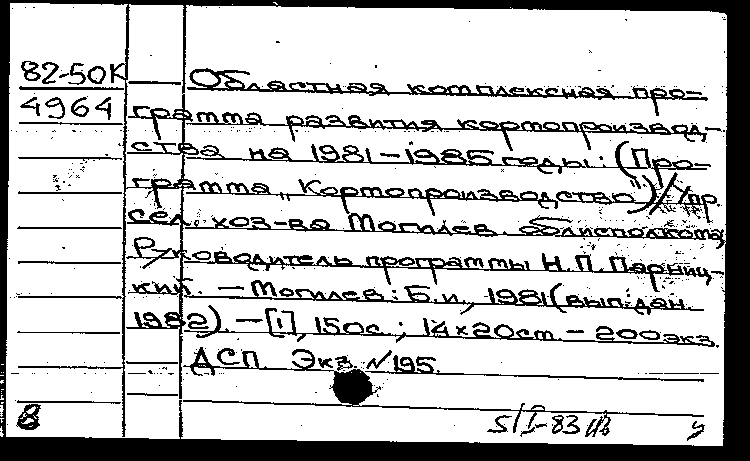 82-50К Областная комплексная про-
4964 грамма развития кормопроизвод-
ства на 1981-1985 годы: (Про-
грамма "Кормопроизводство")/Упр.
сел. хоз-ва Могилев. облисполкома;
Руководитель программы Н.П. Парниц-
кий. – Могилев: Б.и., 1981 (вып. дан.
1982). – [1], 150с.; 14×20см. – 200экз.
ДСП. Экз. №195.
8 5/I-83